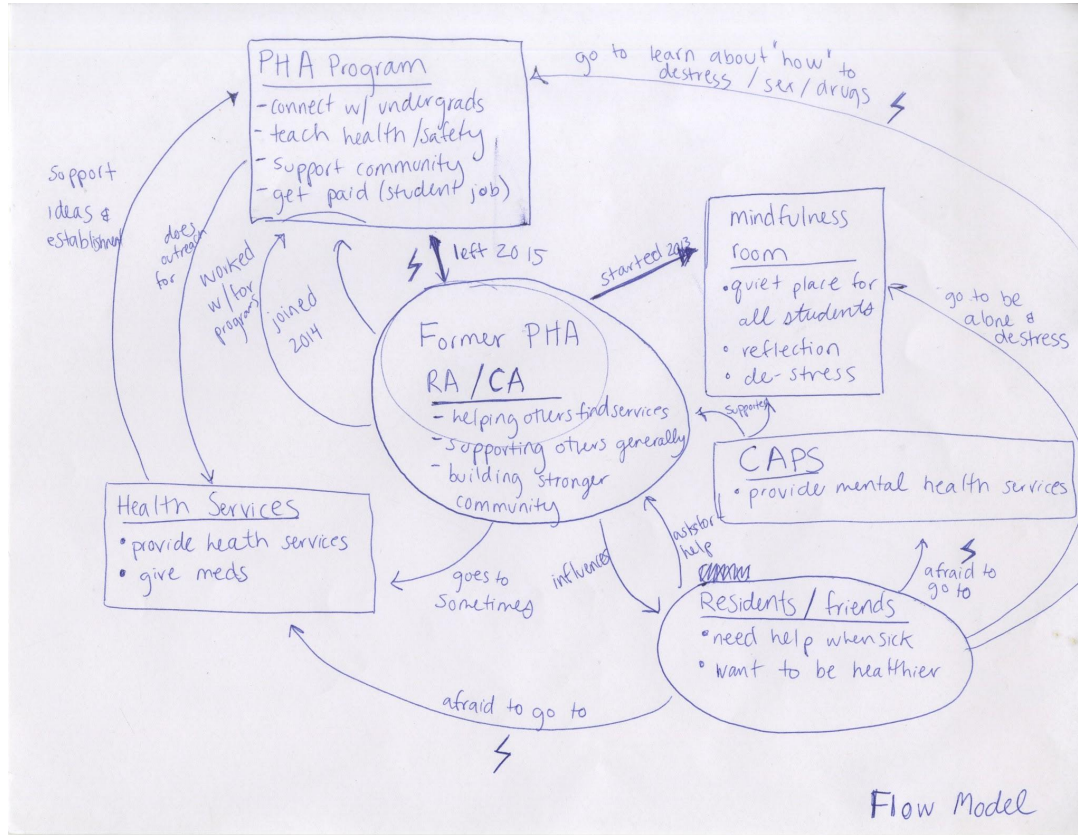 PHA Program
- connect w/ undergrads
- teach health/safety
- support community
- get paid (student job)
go to learn about "how" to
destress / sex/drugs
Support
ideas &
establishment
does
outreach
for
worked
w/for
programs
joined
2014
left 2015
started 2013
mindfulness
room
• quiet place for
all students
• reflection
• de-stress
go to be
alone &
destress
Former PHA
RA / CA
- helping others find services
- supporting others generally
- building stronger
community
supported
CAPS
• provide mental health services
Health Services
• provide heath services
• give meds
goes to
sometimes
influences
asks for
help
afraid to
go to
Residents / friends
• need help when sick
• want to be healthier
afraid to go to
Flow Model